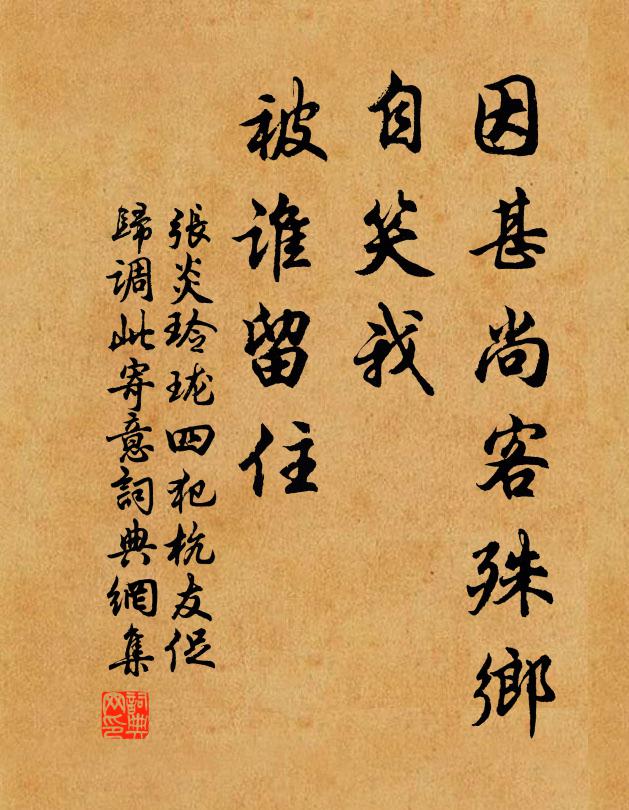 因甚尚客殊鄉
自笑我
被誰留住
張炎玲瓏四犯杭友促
歸調此寄意詞典網集
詞典
网印